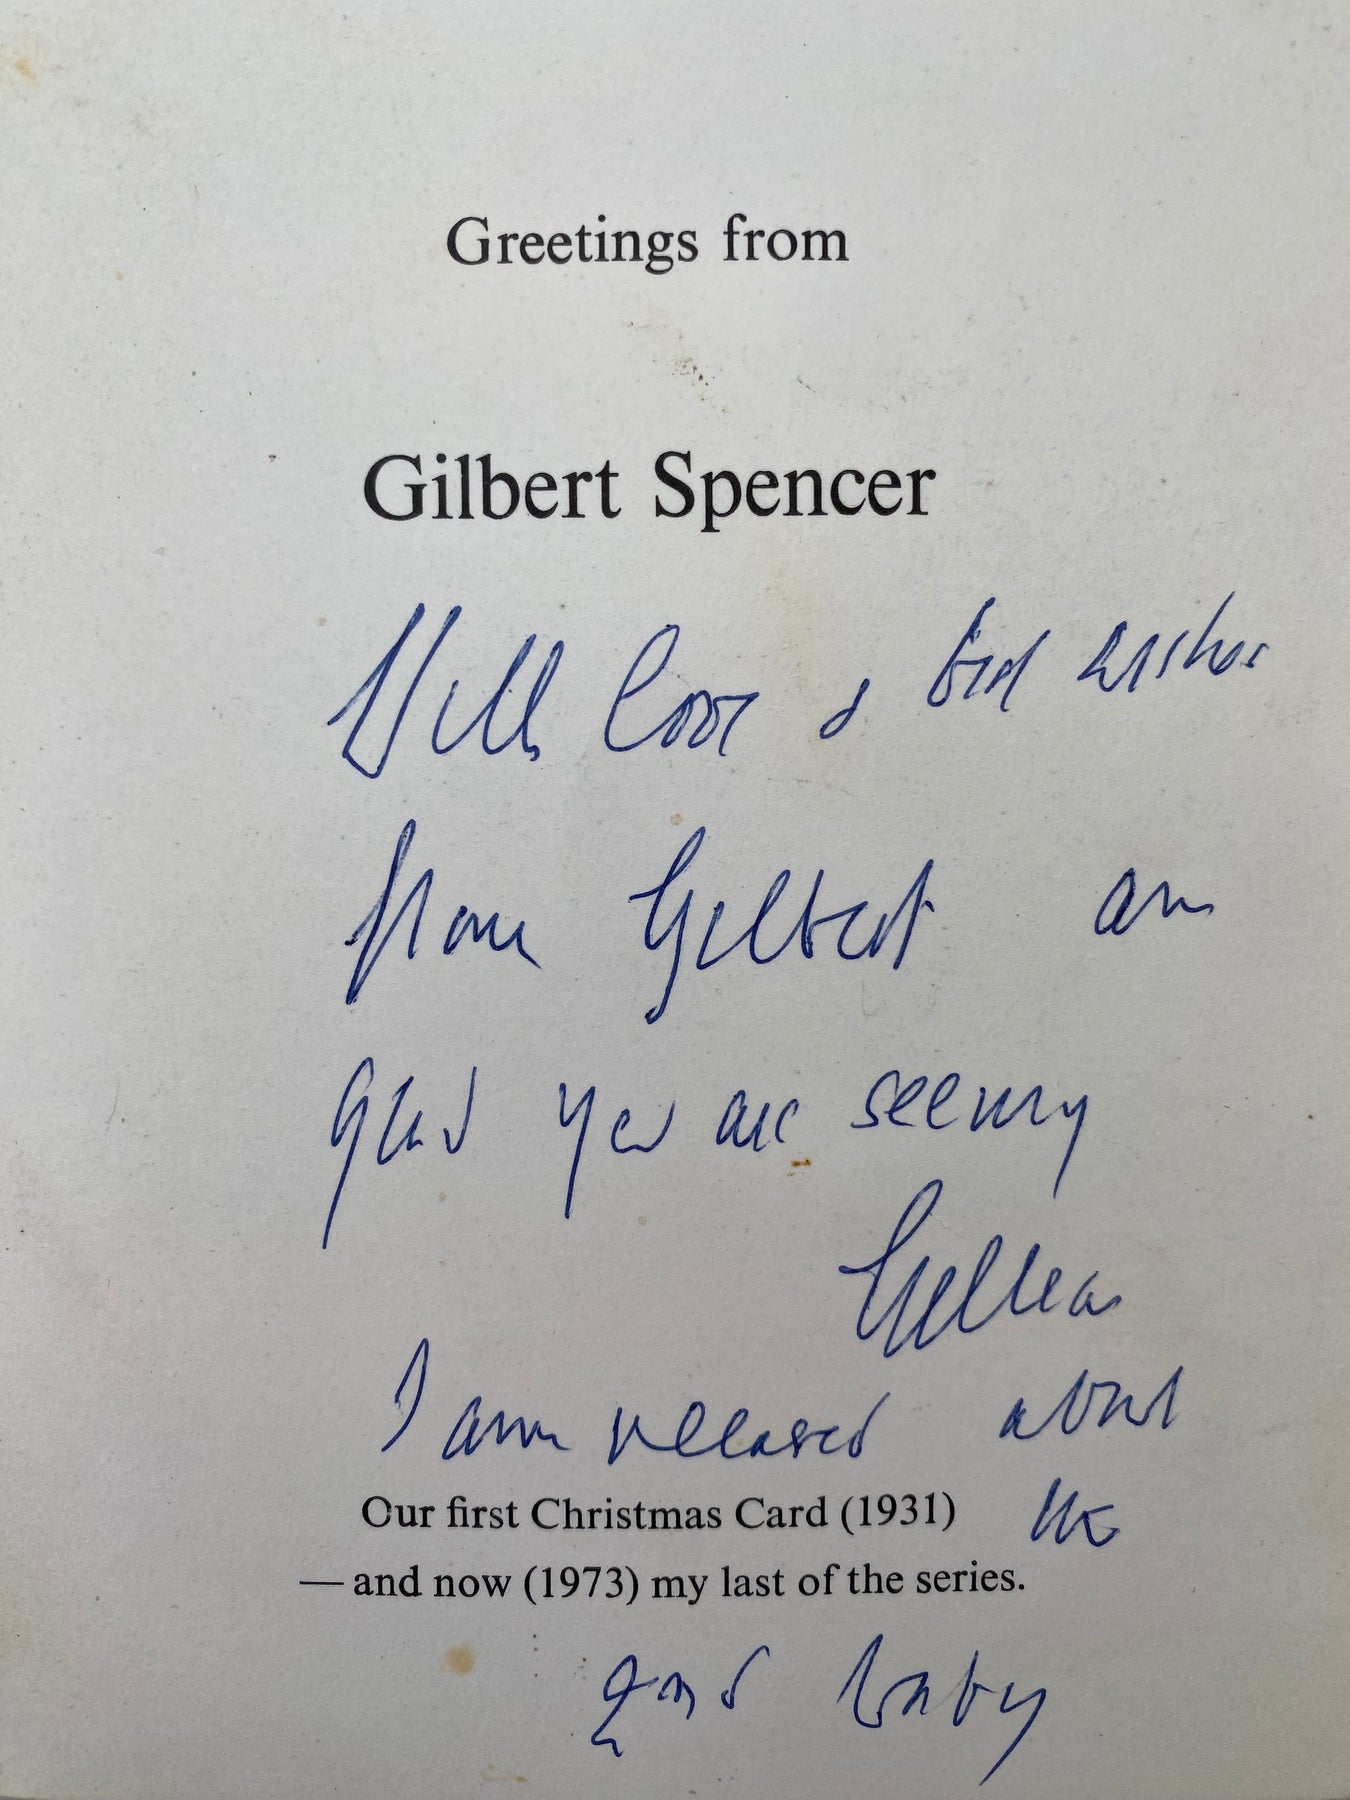 Greetings from
Gilbert Spencer
With love & best wishes
from Gilbert am
glad you are seeing
Gillian
I am pleased about
Our first Christmas Card (1931)
the
— and now (1973) my last of the series.
2nd baby